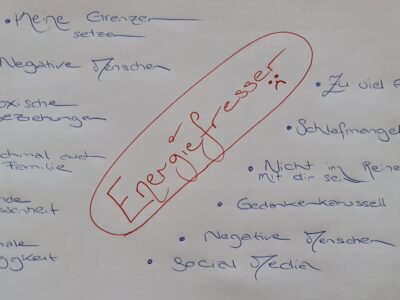 Keine Grenzen
setzen
Negative Menschen
oxische
eziehungen
chmal auch
Familie
Energiefresser
Zu viel
Schlafmangel
Nicht im Reinen
mit dir sein
Gedankenkarussell
Negative Menschen
Social Media